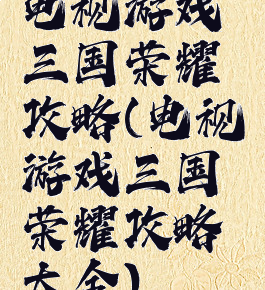 电视游戏
三国荣耀
攻略(电视
游戏三国
荣耀攻略
大全)